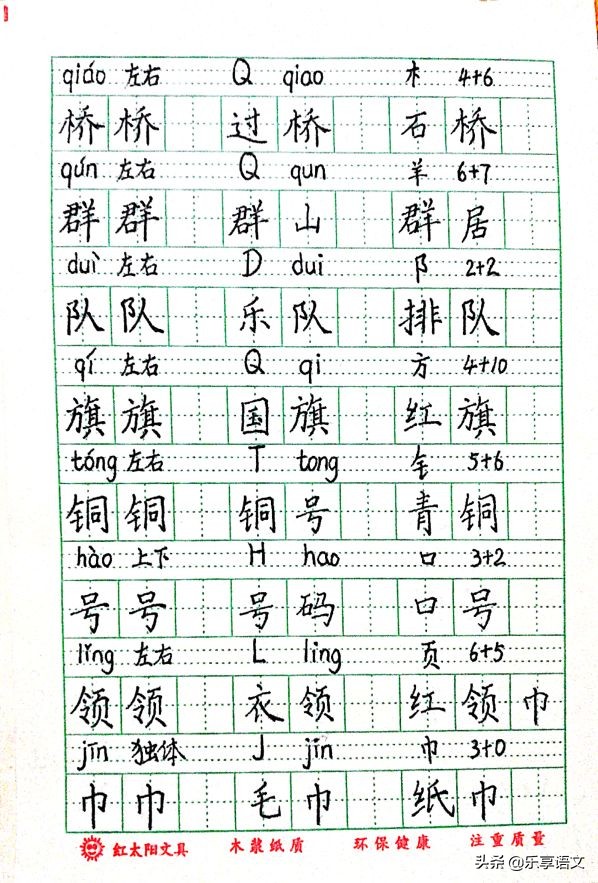 qiáo 左右 Q qiao 木 4+6
桥 桥 过 桥 石 桥
qún 左右 Q qun 羊 6+7
群 群 群 山 群 居
duì 左右 D dui 阝 2+2
队 队 乐 队 排 队
qí 左右 Q qi 方 4+10
旗 旗 国 旗 红 旗
tóng 左右 T tong 钅 5+6
铜 铜 铜 号 青 铜
hào 上下 H hao 口 3+2
号 号 号 码 口 号
lǐng 左右 L ling 页 6+5
领 领 衣 领 红 领 巾
jīn 独体 J jīn 巾 3+0
巾 巾 毛 巾 纸 巾
红太阳文具 木浆纸质 环保健康 注重质量
头条 @乐享语文